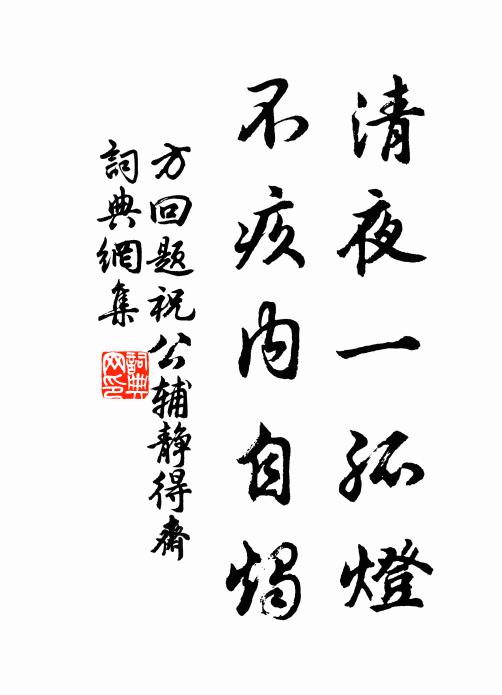 清夜一孤燈
不疚内自燭
方回题祝公辅静得齋
詞典網集
詞典网印